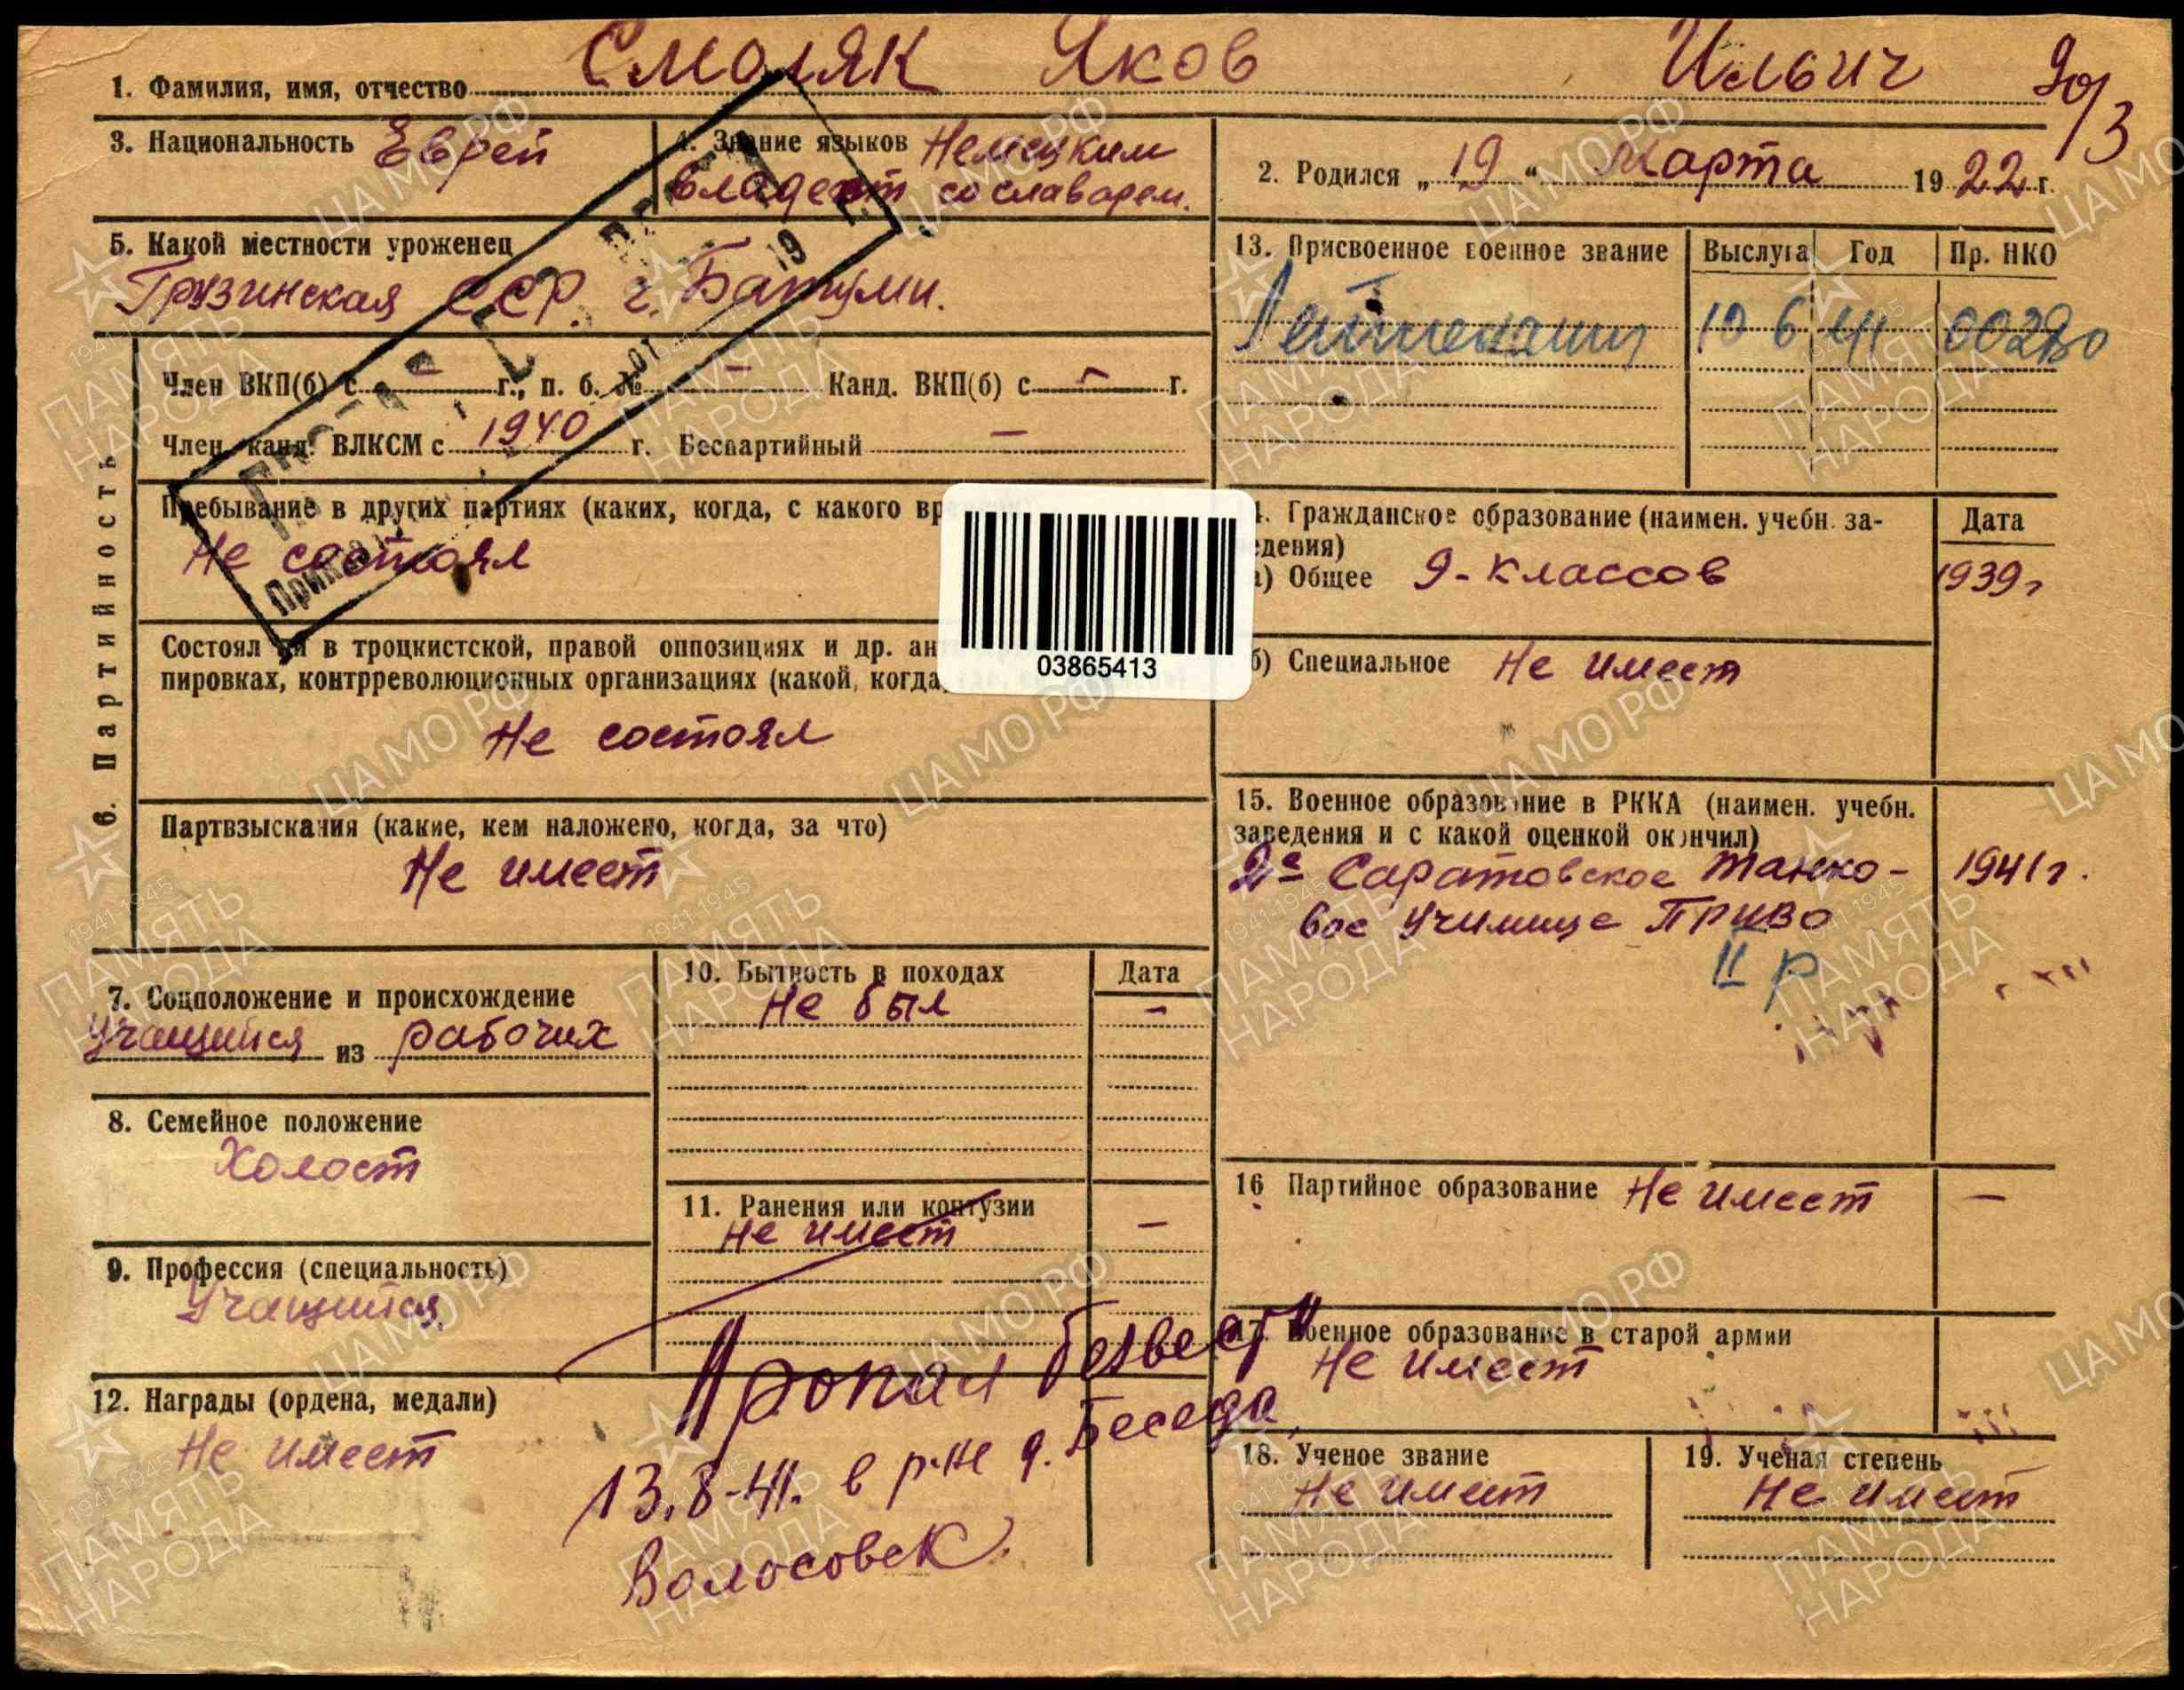 1. Фамилия, имя, отчество Смоляк Яков Ильич
3. Национальность Еврей
4. Знание языков Немецким
владеет со славарем.
2. Родился „ 19 “ Марта 1922 г.
5. Какой местности уроженец
Грузинская ССР. г. Батуми.
13. Присвоенное военное звание Выслуга Год Пр. НКО
Лейтенант 10 6 41
6. Партийность
Член ВКП(б) с – г., п. б. № – Канд. ВКП(б) с – г.
Член, канд. ВЛКСМ с 1940 г. Беспартийный –
Пребывание в других партиях (каких, когда, с какого
Не состоял
Приказ
от
19
Состоял ли в троцкистской, правой оппозициях и др.
пировках, контрреволюционных организациях (какой, когда,
Не состоял
03865413
Партвзыскания (какие, кем наложено, когда, за что)
Не имеет
14. Гражданское образование (наимен. учебн. за-
ведения) Дата
а) Общее 9-классов 1939г
б) Специальное Не имеет
15. Военное образование в РККА (наимен. учебн.
заведения и с какой оценкой окончил)
2е Саратовское танко- 1941г.
вое училище ПРИВО
II р
7. Соцположение и происхождение
Учащийся из рабочих
8. Семейное положение
Холост
9. Профессия (специальность)
Учащийся
10. Бытность в походах Дата
Не был –
11. Ранения или контузии
Не имеет –
12. Награды (ордена, медали)
Не имеет
Пропал безвести
13.8-41. в р-не д. Беседа
Волосовск.
16 Партийное образование Не имеет –
17. Военное образование в старой армии
Не имеет
18. Ученое звание
Не имеет
19. Ученая степень
Не имеет
ЦАМО РФ
1941-1945
ПАМЯТЬ
НАРОДА